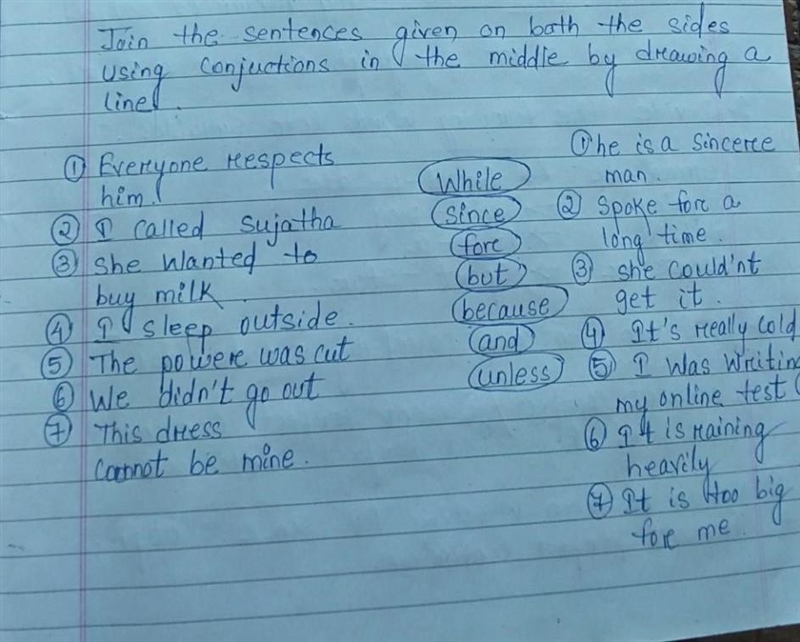 Join the sentences given on both the sides
using conjuctions in the middle by drawing a
line.
① Everyone respects
him.
② I called Sujatha
③ She wanted to
buy milk.
④ I sleep outside.
⑤ The power was cut
⑥ We didn't go out
⑦ This dress
cannot be mine.
While
since
for
but
because
and
unless
① he is a sincere
man.
② Spoke for a
long time.
③ she could'nt
get it.
④ It's really cold
⑤ I was writing
my online test
⑥ It is raining
heavily
⑦ It is too big
for me.